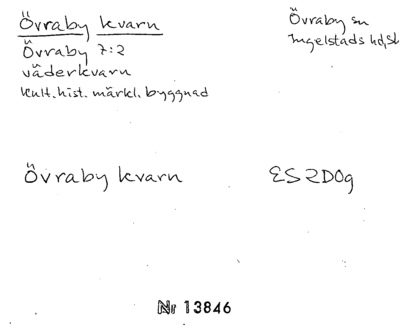 Övraby kvarn
Övraby 7:2
väderkvarn
kult. hist. märkl. byggnad
Övraby sn
Ingelstads hd, Sk
Övraby kvarn
ES2D0g
Nr 13846